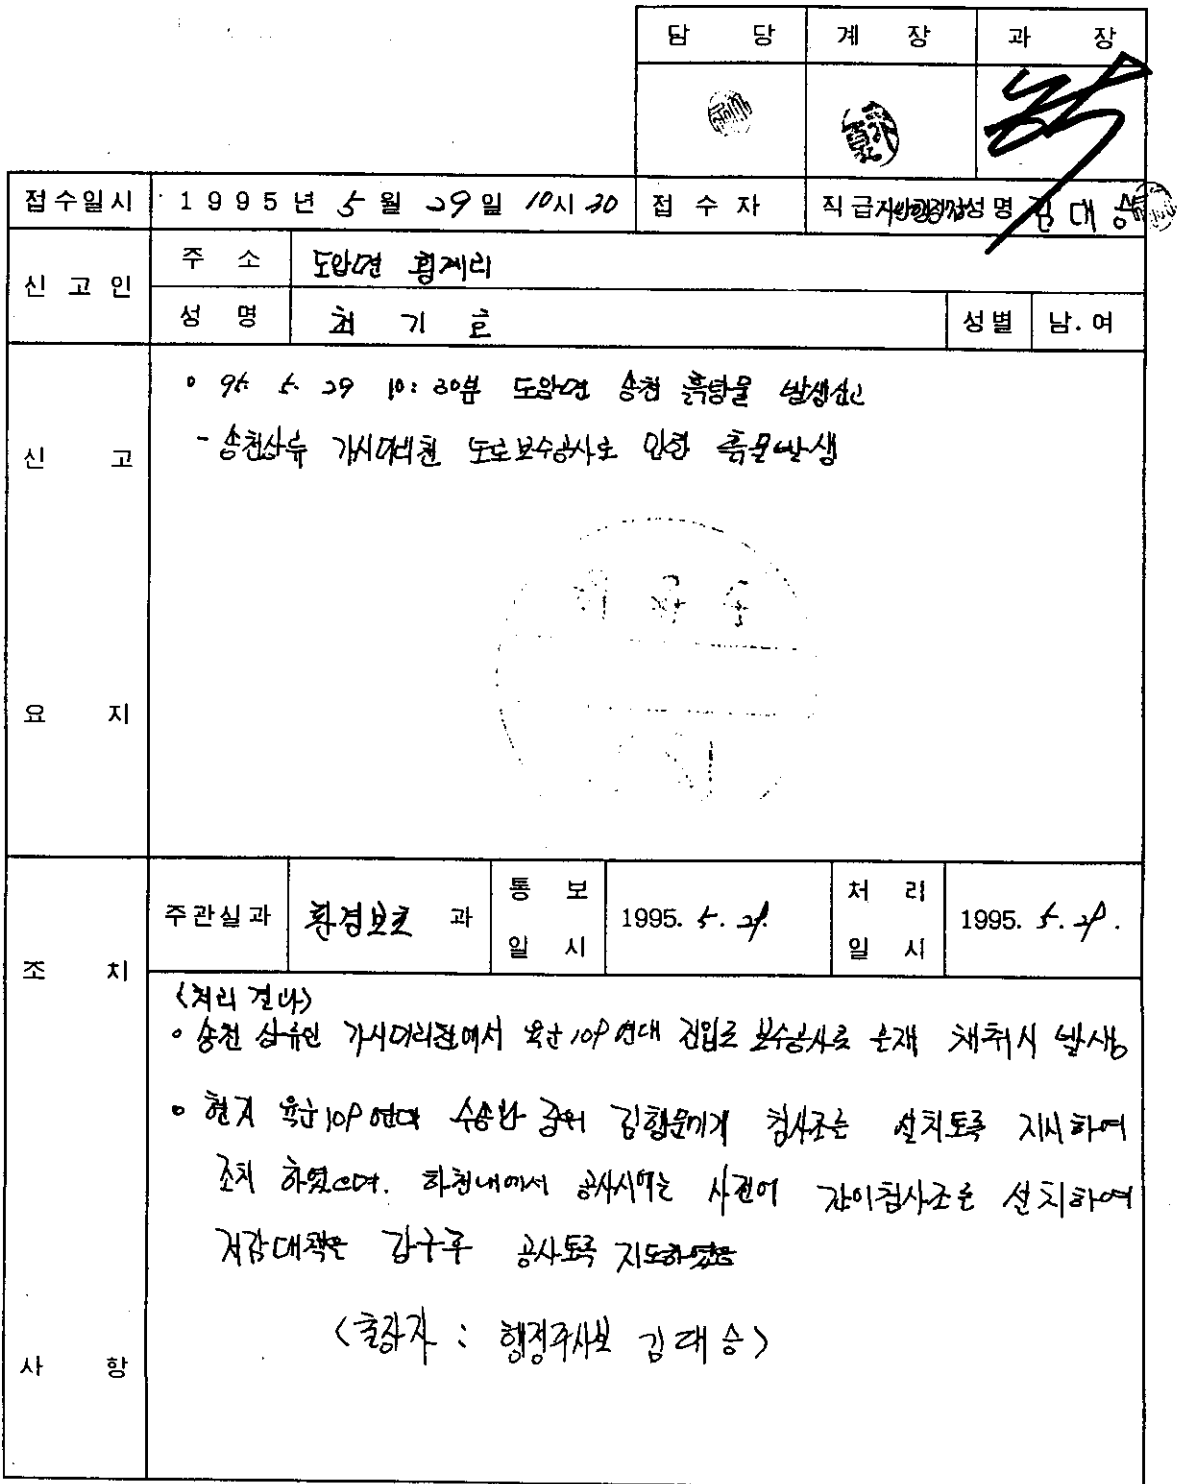 담 당 계 장 과 장
접수일시 1995년 5월 29일 10시 30 접 수 자 직급 지방행정 성명 김대승
신 고 인 주 소 도암면 횡계리
성 명 최 기 호 성별 남.여
신 고 요 지
◦ 95. 5. 29 10:30분 도암면 송천 흙탕물 발생신고
- 송천상류 가시머리천 도로보수공사로 인한 흙물발생
조 치 사 항
주관실과 환경보호 과 통 보 일 시 1995. 5. 29. 처 리 일 시 1995. 5. 29.
<처리결과>
◦ 송천 상류인 가시머리천에서 육군 연대 진입로 보수공사로 채취시 발생
◦ 현지 육군 연대 중위 김형문에게 침사조를 설치토록 지시하여
조치 하였으며. 하천내에서 공사시에는 사전에 간이침사조를 설치하여
저감대책을 강구후 공사토록 지도하였음
<출장자 : 행정주사보 김대승>